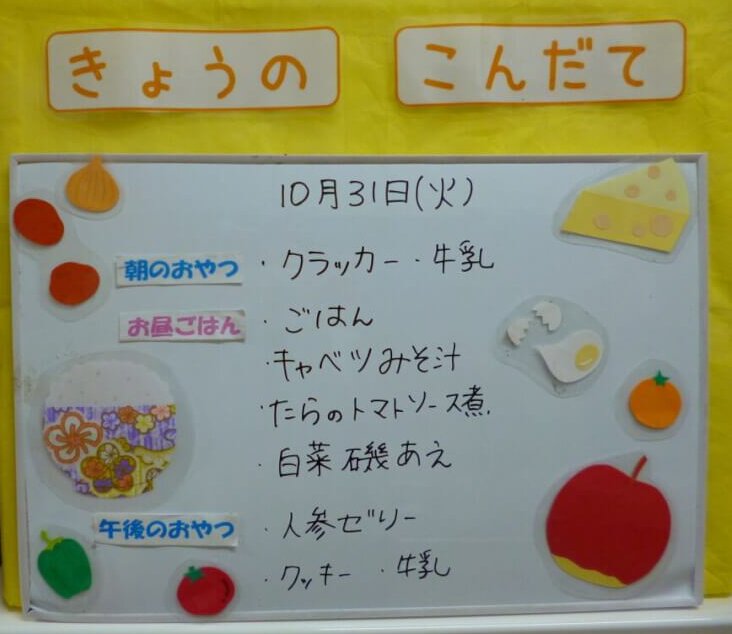 きょうの こんだて
10月31日(火)
朝のおやつ ・クラッカー ・牛乳
お昼ごはん ・ごはん
・キャベツみそ汁
・たらのトマトソース煮
・白菜磯あえ
午後のおやつ ・人参ゼリー
・クッキー ・牛乳